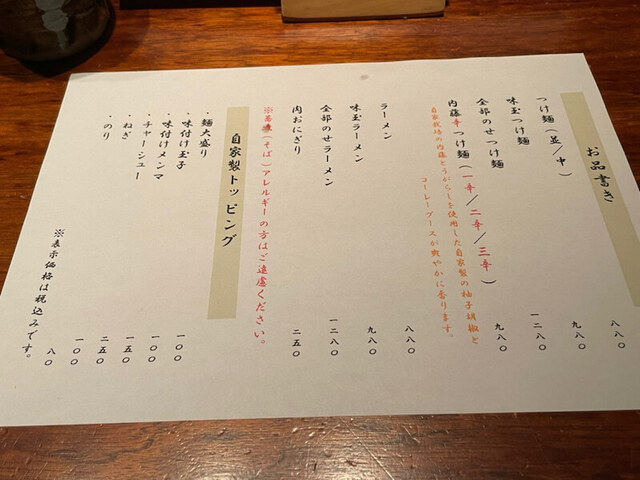 お品書き
つけ麺（並／中） 八八〇
味玉つけ麺 九八〇
全部のせつけ麺 一二八〇
内藤辛つけ麺（一辛／二辛／三辛） 九八〇
自家栽培の内藤とうがらしを使用した自家製の柚子胡椒と
コーレーグースが爽やかに香ります。
ラーメン 八八〇
味玉ラーメン 九八〇
全部のせラーメン 一二八〇
肉おにぎり 二五〇
※蕎麦（そば）アレルギーの方はご遠慮ください。
自家製トッピング
・麺大盛り 一〇〇
・味付け玉子 一〇〇
・味付けメンマ 一五〇
・チャーシュー 二五〇
・ねぎ 一〇〇
・のり 八〇
※表示価格は税込みです。